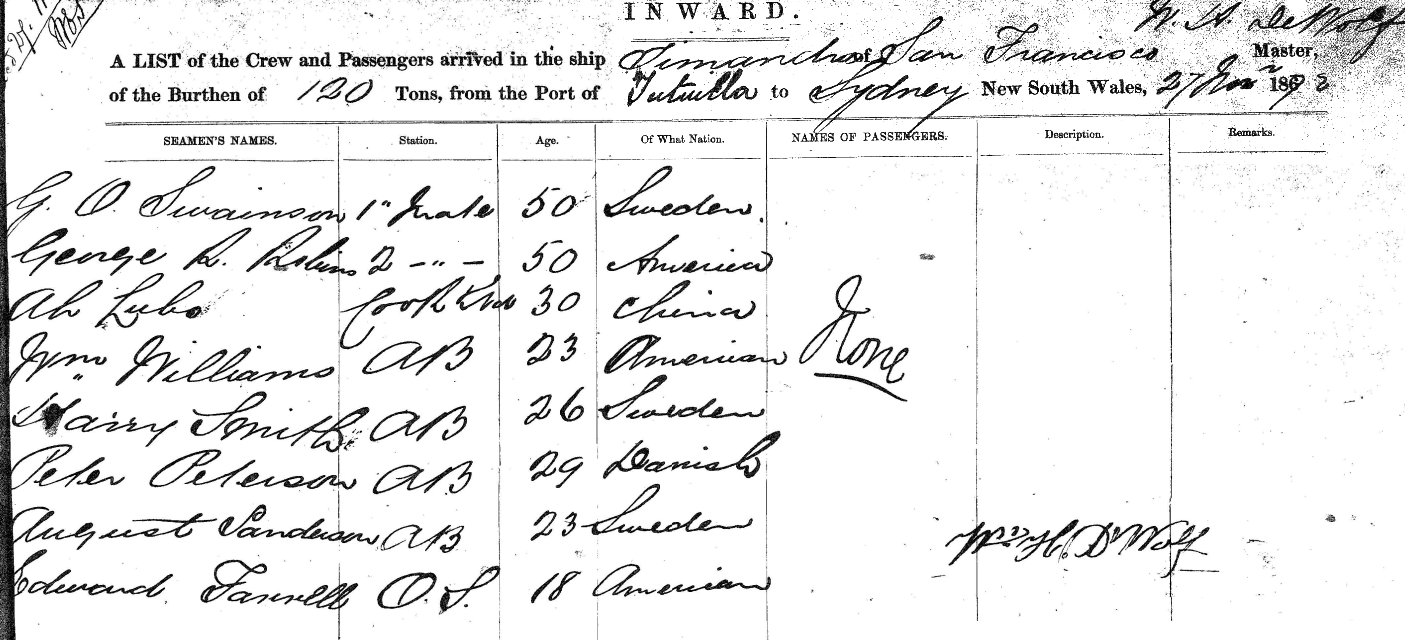 INWARD.
W. H. DeWolf
A LIST of the Crew and Passengers arrived in the ship Timandra of San Francisco Master,
of the Burthen of 120 Tons, from the Port of Tutuilla to Sydney New South Wales, 27 Nov 1872
SEAMEN'S NAMES. Station. Age. Of What Nation. NAMES OF PASSENGERS. Description. Remarks.
G. O. Swainson 1" Mate 50 Sweden.
George R. Robins 2 - " - 50 America
Ah Lubo Cook & 30 China
None
Wm Williams AB 23 American
Harry Smith AB 26 Sweden
Peter Peterson AB 29 Danish
August Sanderson AB 23 Sweden
Wm H. DeWolf
Edward Farrell O.S. 18 American